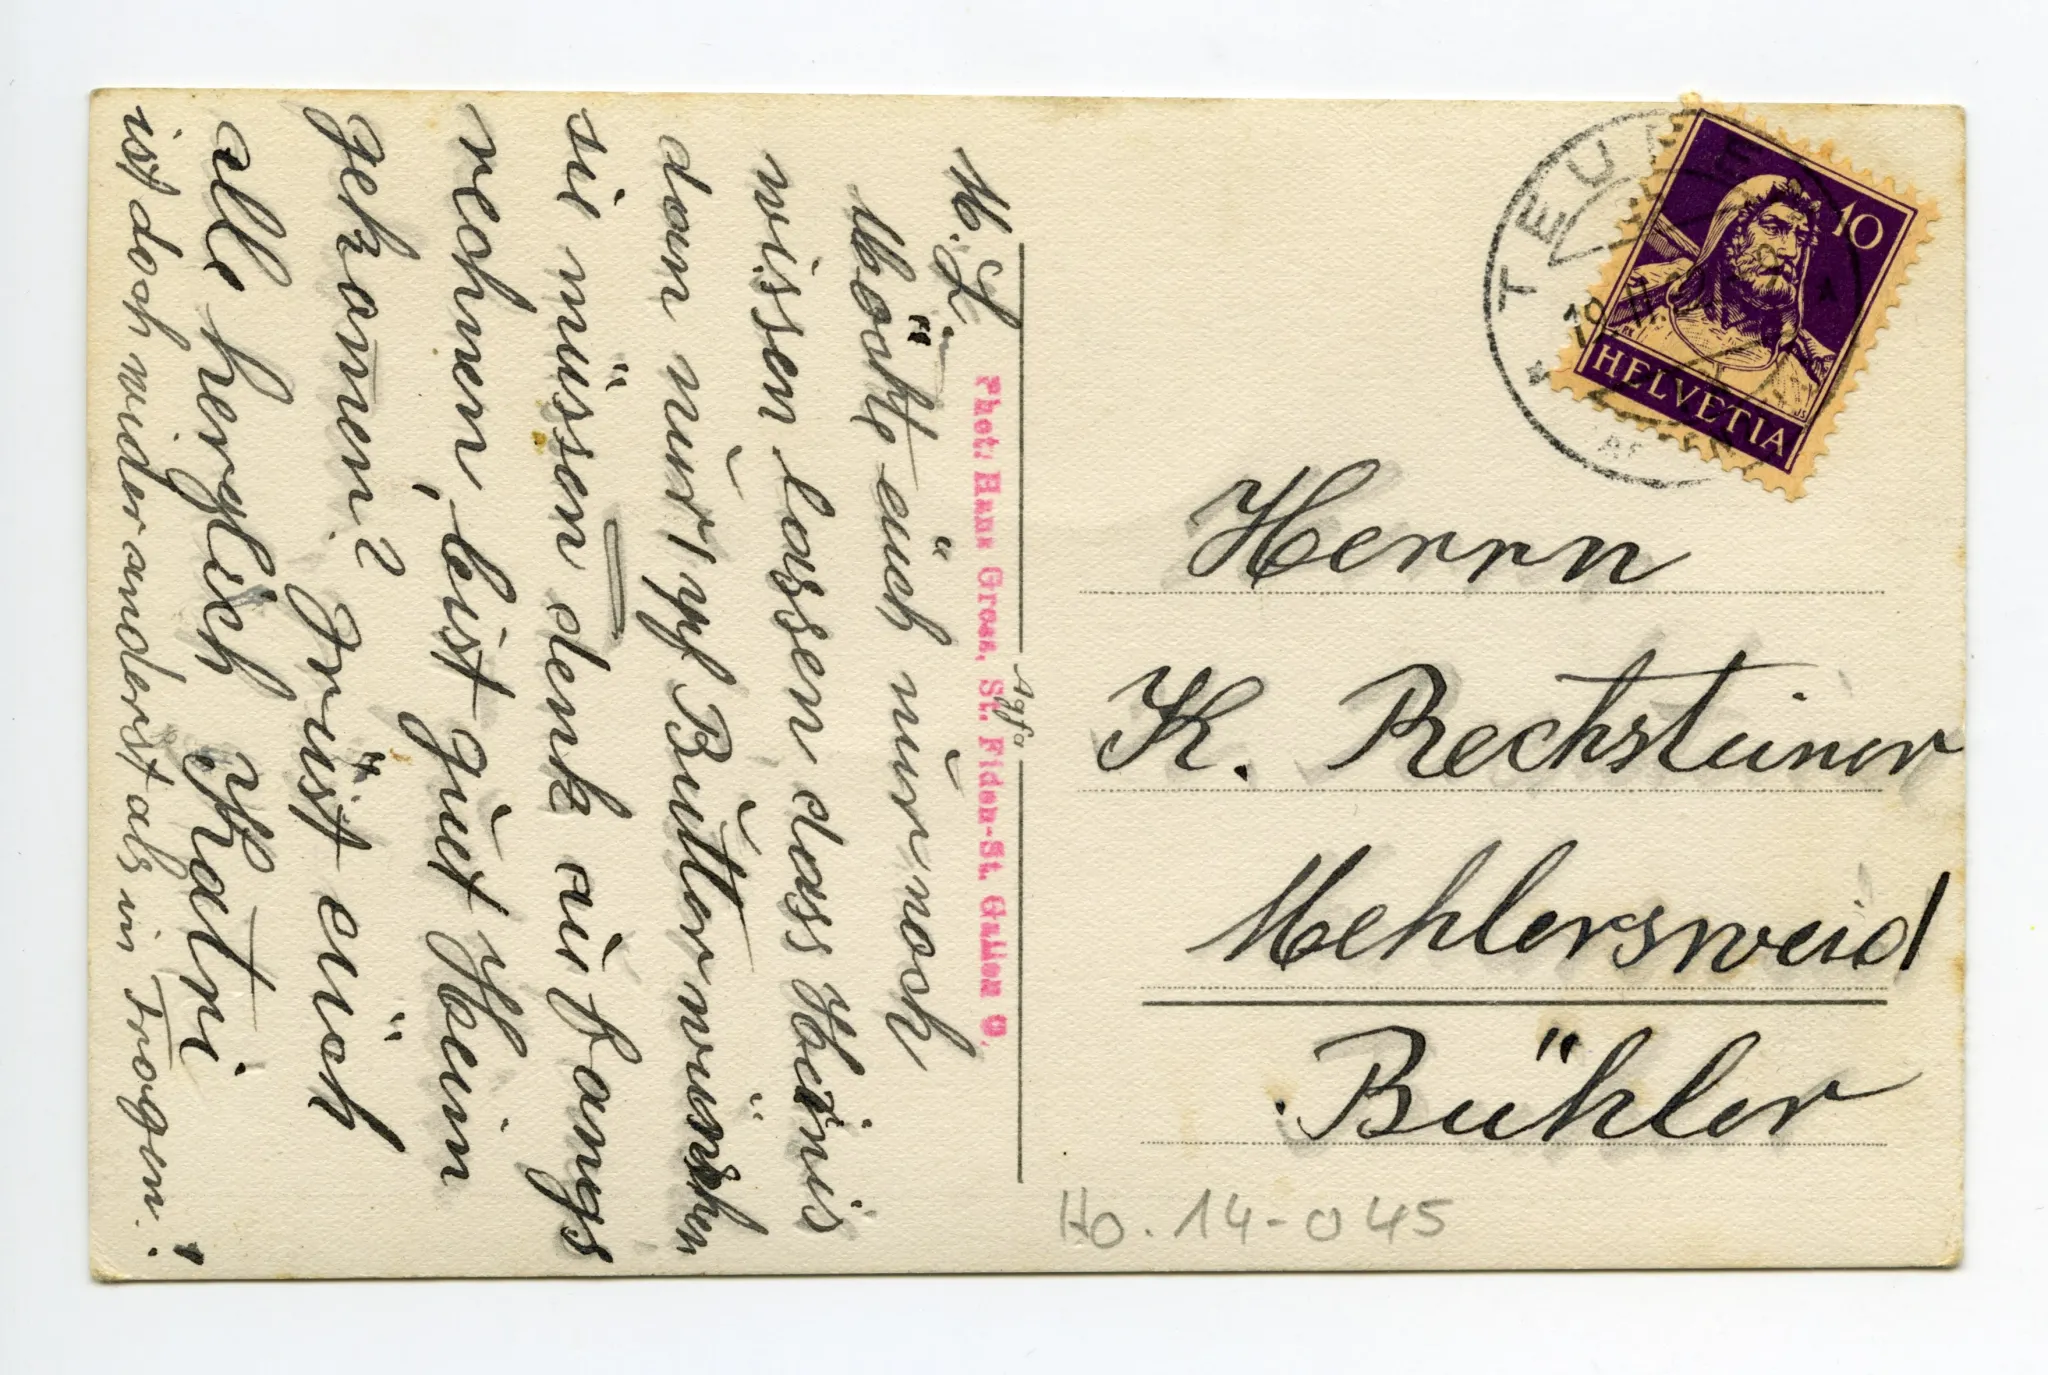 M. L.
Möchte euch nur noch
wissen lassen dass Heinis
dann nur 1 ypf Butter wünschen
sie müssen denk aufangs
rechnen, bist guet Heim
gekomen? Grüst euch
alle herzlich Katri
ist doch wider anderst als in Trogen.
Phot: Hans Gross, St. Fiden-St. Gallen O.
Agfa
TEUFEN
10
HELVETIA
Herrn
K. Rechsteiner
Mehlersweid
Bühler
Ho. 14-045